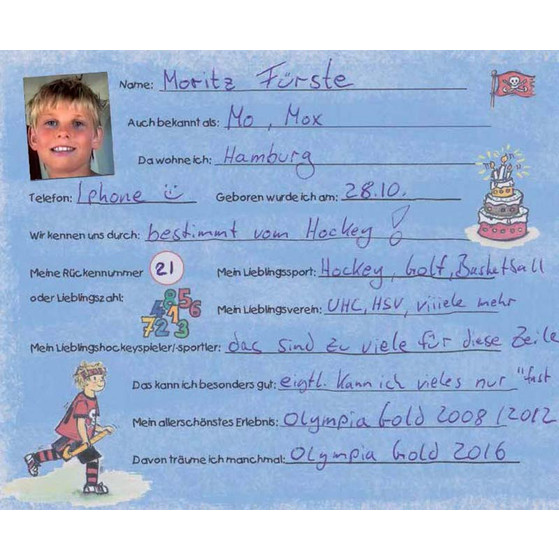 Name: Moritz Fürste
Auch bekannt als: Mo, Mox
Da wohne ich: Hamburg
Telefon: Iphone Geboren wurde ich am: 28.10.
Wir kennen uns durch: bestimmt vom Hockey!
Meine Rückennummer 21 Mein Lieblingssport: Hockey, Golf, Basketball
oder Lieblingszahl: 8 5 5 6 4 1 7 2 2 3 Mein Lieblingsverein: UHC, HSV, viiiele mehr
Mein Lieblingshockeyspieler/-sportler: das sind zu viele für diese Zeile
Das kann ich besonders gut: eigtl. kann ich vieles nur "fast
Mein allerschönstes Erlebnis: Olympia Gold 2008/2012
Davon träume ich manchmal: Olympia Gold 2016